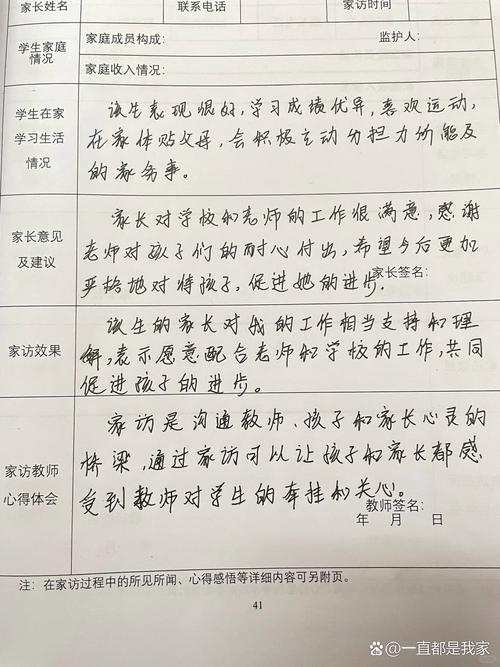 家长姓名 联系电话 家访时间
学生家庭 家庭成员构成： 监护人：
情况 家庭收入情况：
学生在家
学习生活
情况
该生表现很好，学习成绩优异，喜欢运动，
在家体贴父母，会积极主动分担力所能及
的家务事。
家长意见
及建议
家长对学校和老师的工作很满意，感谢
老师对孩子们的耐心付出，希望今后更加
严格地对待孩子，促进她的进步。
家长签名：
家访效果
该生的家长对我的工作相当支持和理
解，表示愿意配合老师和学校的工作，共同
促进孩子的进步。
家访教师
心得体会
家访是沟通教师、孩子和家长心灵的
桥梁，通过家访可以让孩子和家长都感
受到教师对学生的牵挂和关心。
教师签名：
年 月 日
注：在家访过程中的所见所闻、心得感悟等详细内容可另附页。
41
百家号@一直都是我家